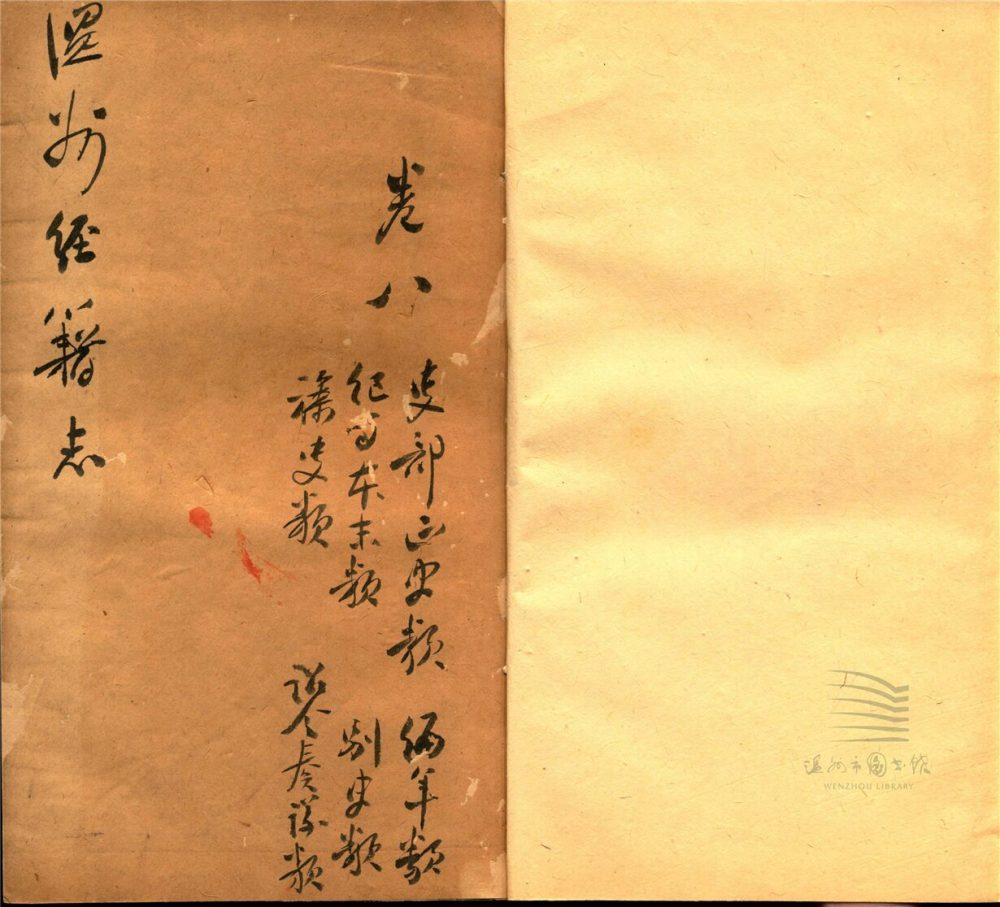 卷八
史部正史類　編年類
紀事本末類　別史類
襍史類　詔令奏議類
溫州經籍志
温州市图书馆
WENZHOU LIBRARY